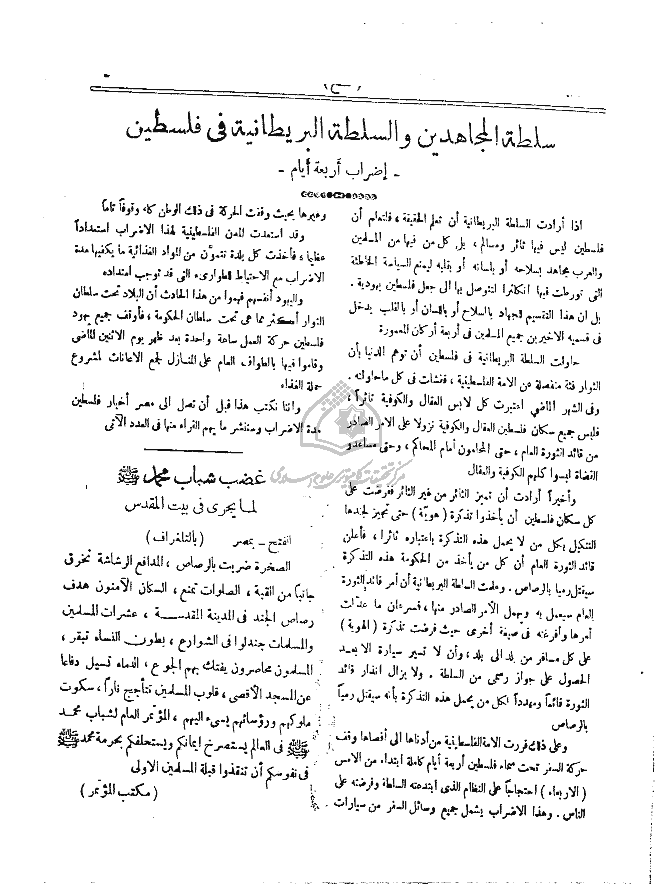 سلطة المجاهدين والسلطة البريطانية فى فلسطين
- إضراب أربعة أيام -
اذا أرادت السلطة البريطانية أن تعلم الحقيقة ، فلتعلم أن
فلسطين ليس فيها ثائر ومسالم ، بل كل من فيها من المسلمين
والعرب مجاهد بسلاحه أو بلسانه أو بقلبه ليمنع السياسة الخاطئة
التى تورطت فيها انكلترا لتتوصل بها الى جعل فلسطين يهودية .
بل ان هذا التقسيم للجهاد بالسلاح أو باللسان أو بالقلب يدخل
فى قسميه الاخيرين جميع المسلمين فى أربعة أركان المعمورة
حاولت السلطة البريطانية فى فلسطين أن توهم الدنيا بأن
الثوار فئة منفصلة عن الامة الفلسطينية ، ففشلت فى كل ماحاولته .
وفى الشهر الماضى اعتبرت كل لابس العقال والكوفية ثائراً ،
فلبس جميع سكان فلسطين العقال والكوفية نزولا على الامر الصادر
من قائد الثورة العام ، حتى المحامون أمام المحاكم ، وحتى مساعدو
القضاة لبسوا كلهم الكوفية والعقال
وأخيراً أرادت أن تميز الثائر من غير الثائر ففرضت على
كل سكان فلسطين أن يأخذوا تذكرة ( هوية ) حتى تجيز لجندها
التنكيل بكل من لا يحمل هذه التذكرة باعتباره ثائراً ، فأعلن
قائد الثورة العام أن كل من يأخذ من الحكومة هذه التذكرة
سيقتل رميا بالرصاص . وعلمت السلطة البريطانية أن أمر قائد الثورة
العام سيعمل به وجهل الأمر الصادر منها ، فسرعان ما عدّلت
أمرها وأفرغته فى صيغة أخرى حيث فرضت تذكرة ( الهوية )
على كل مسافر من بلد الى بلد ، وأن لا تسير سيارة الا بعد
الحصول على جواز رسمى من السلطة . ولا يزال انذار قائد
الثورة قائماً ومهدداً لكل من يحمل هذه التذكرة بأنه سيقتل رمياً
بالرصاص
وعلى ذلك قررت الامة الفلسطينية من أدناها الى أقصاها وقف
حركة السفر تحت سماء فلسطين أربعة أيام كاملة ابتدا. من الامس
( الاربعاء ) احتجاجاً على النظام الذى ابتدعته السلطة وفرضته على
الناس . وهذا الاضراب يشمل جميع وسائل السفر من سيارات
وغيرها بحيث وقفت الحركة فى ذلك الوطن كله وقوفاً تاماً
وقد استعدت المدن الفلسطينية لهذا الاضراب استعداداً
عظيما ، فأخذت كل بلدة تتموّن من المواد الغذائية ما يكفيها مدة
الاضراب مع الاحتياط للطوارىء التى قد توجب امتداده
واليهود أنفسهم فهموا من هذا الحادث أن البلاد تحت سلطان
الثوار أكثر مما هى تحت سلطان الحكومة ، فأوقف جميع يهود
فلسطين حركة العمل ساعة واحدة بعد ظهر يوم الاثنين الماضى
وقاموا فيها بالطواف العام على المنازل لجمع الاعانات لمشروع
حملة الفداء
واننا نكتب هذا قبل أن تصل الى مصر أخبار فلسطين
مدة الاضراب وسننشر ما يهم القراء منها فى العدد الآتى
غضب شباب محمد ﷺ
لما يجرى فى بيت المقدس
الفتح - بمصر ( بالتلغراف )
الصخرة ضربت بالرصاص ، المدافع الرشاشة تخرق
جانباً من القبة ، الصلوات تمنع ، السكان الآمنون هدف
رصاص الجند فى المدينة المقدسة ، عشرات المسلمين
والمسلمات جندلوا فى الشوارع ، بطون النساء تبقر ،
المسلمون محاصرون يفتك بهم الجوع ، الدماء تسيل دفاعا
عن المسجد الأقصى ، قلوب المسلمين تتأجج ناراً ، سكوت
ملوكهم ورؤسائهم يسىء اليهم ، المؤتمر العام لشباب محمد
ﷺ فى العالم يستصرخ ايمانكم ويستحلفكم بحرمة محمد ﷺ
فى نفوسكم أن تنقذوا قبلة المسلمين الاولى
( مكتب المؤتمر )